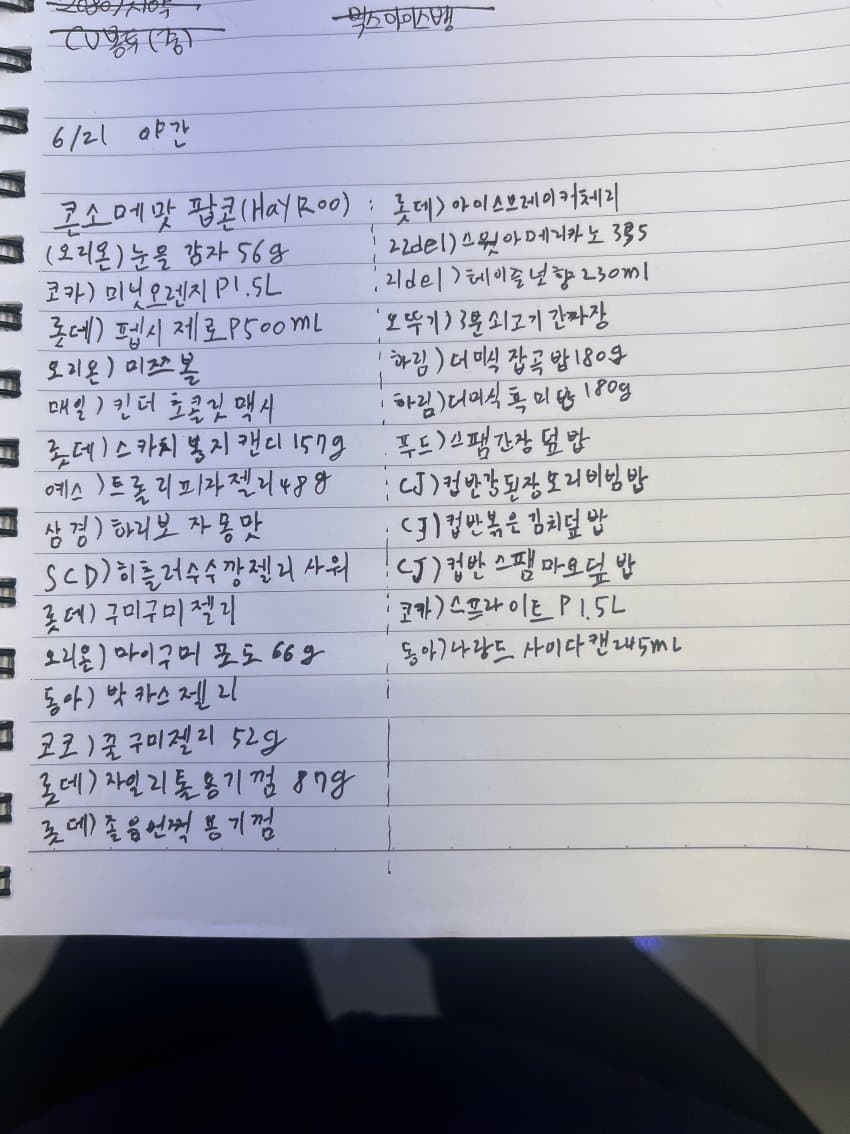 2080)치약
CU봉투(중)
믹스아이스뱅
6/21 야간
콘소메맛 팝콘(HAYROO)
(오리온)눈을 감자 56g
코카)미닛오렌지P1.5L
롯데)펩시 제로P500mL
오리온)미쯔볼
매일)킨더 초콜릿 맥시
롯데)스카치 봉지 캔디 157g
예스)트롤리피자젤리48g
삼경)하리보 자몽맛
SCD)히츨러수수깡젤리 사워
롯데)구미구미 젤리
오리온)마이구머 포도 66g
동아)박카스젤리
코코)꿀구미젤리 52g
롯데)자일리톨용기껌 87g
롯데)졸음번쩍 용기껌
롯데)아이스브레이커체리
22del)스윗아메리카노 335
21del)헤이즐넛향230ml
오뚜기)3분쇠고기간짜장
하림)더미식 잡곡밥180g
하림)더미식 흑미밥 180g
푸드)스팸간장덮밥
CJ)컵반강된장보리비빔밥
CJ)컵반볶은김치덮밥
CJ)컵반 스팸마요덮밥
코카)스프라이트P1.5L
동아)나랑드 사이다캔245mL